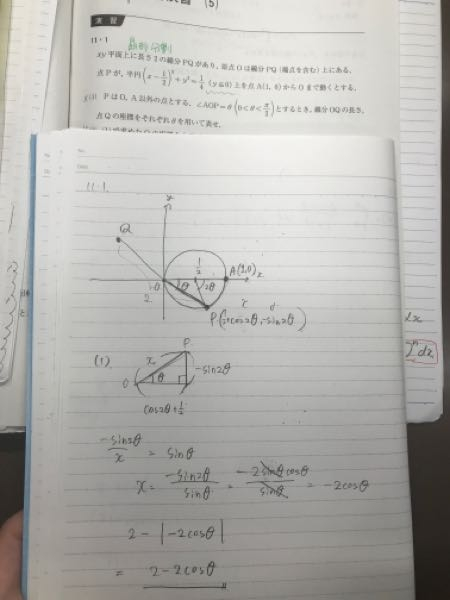 演習
11・1
扇形分割
xy平面上に長さ2の線分PQがあり、原点Oは線分PQ(端点を含む)上にある。
点Pが、半円(x-1/2)²+y²=1/4 (y≦0)上を点A(1, 0)からOまで動くとする。
PはO、A以外の点とする。∠AOP=θ(0<θ<π/2)とするとき、線分OQの長さ、
点Qの座標をそれぞれθを用いて表せ。
No.
Date
11・1.
y
Q
1/2
A(1,0) x
θ
θ
2θ
2
x y
P(1/2+cos2θ, -sin2θ)
(1)
P
x
-sin2θ
O
θ
cos2θ+1/2
-sin2θ/x = sinθ
x = -sin2θ/sinθ = -2sinθcosθ/sinθ = -2cosθ
2-|-2cosθ|
= 2-2cosθ
dx
dx